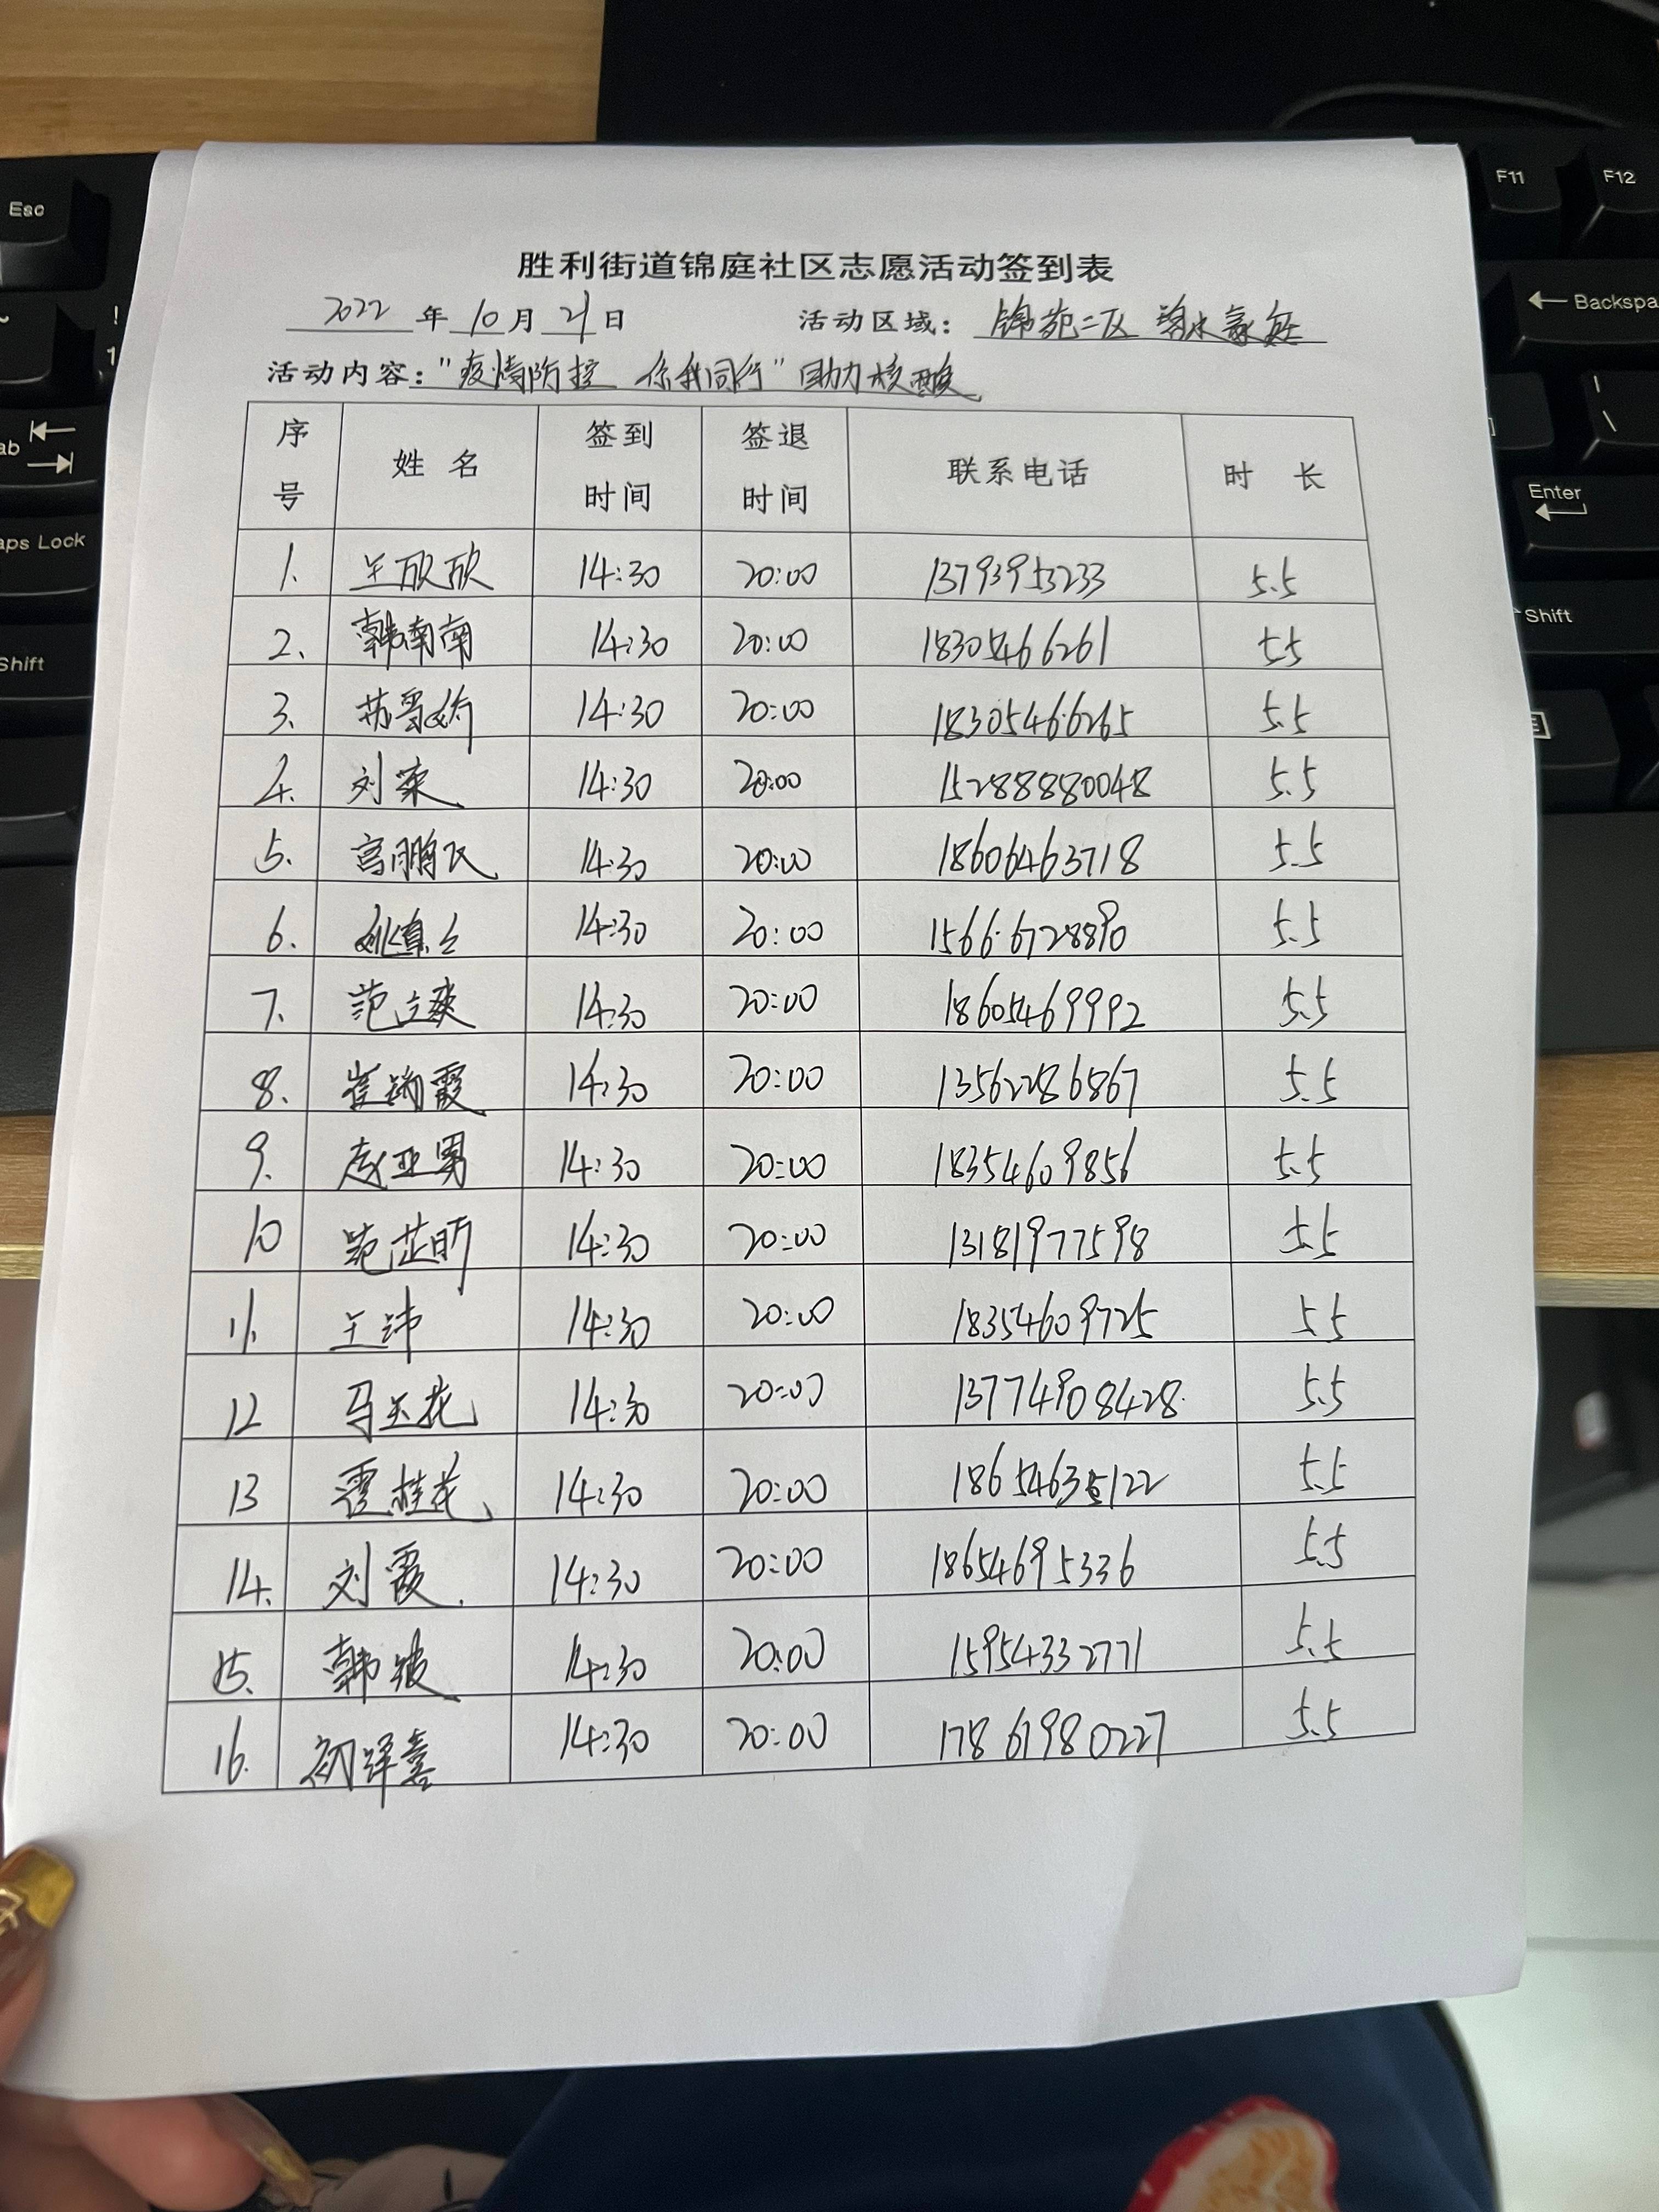 胜利街道锦庭社区志愿活动签到表
2022 年 10 月 21 日 活动区域: 锦苑二区
活动内容:"疫情防控 你我同行"助力核酸
序号 姓名 签到时间 签退时间 联系电话 时长
1. 王欣欣 14:30 20:00 13793953233 5.5
2. 韩南南 14:30 20:00 18305466261 5.5
3. 14:30 20:00 18305466265 5.5
4. 刘 14:30 20:00 15288880048 5.5
5. 14:30 20:00 18606463718 5.5
6. 14:30 20:00 15666728890 5.5
7. 范立爽 14:30 20:00 18605469992 5.5
8. 14:30 20:00 13562286867 5.5
9. 赵亚男 14:30 20:00 18354609856 5.5
10 范芷昕 14:30 20:00 13181977598 5.5
11. 王 14:30 20:00 18354609725 5.5
12 马玉花 14:30 20:00 13774908428 5.5
13 霍桂花 14:30 20:00 18654635122 5.5
14. 刘霞 14:30 20:00 18654695336 5.5
15. 韩 14:30 20:00 15954332771 5.5
16. 初译喜 14:30 20:00 17861980227 5.5
Esc
F11
F12
Backspa
ab
Enter
aps Lock
Shift
Shift